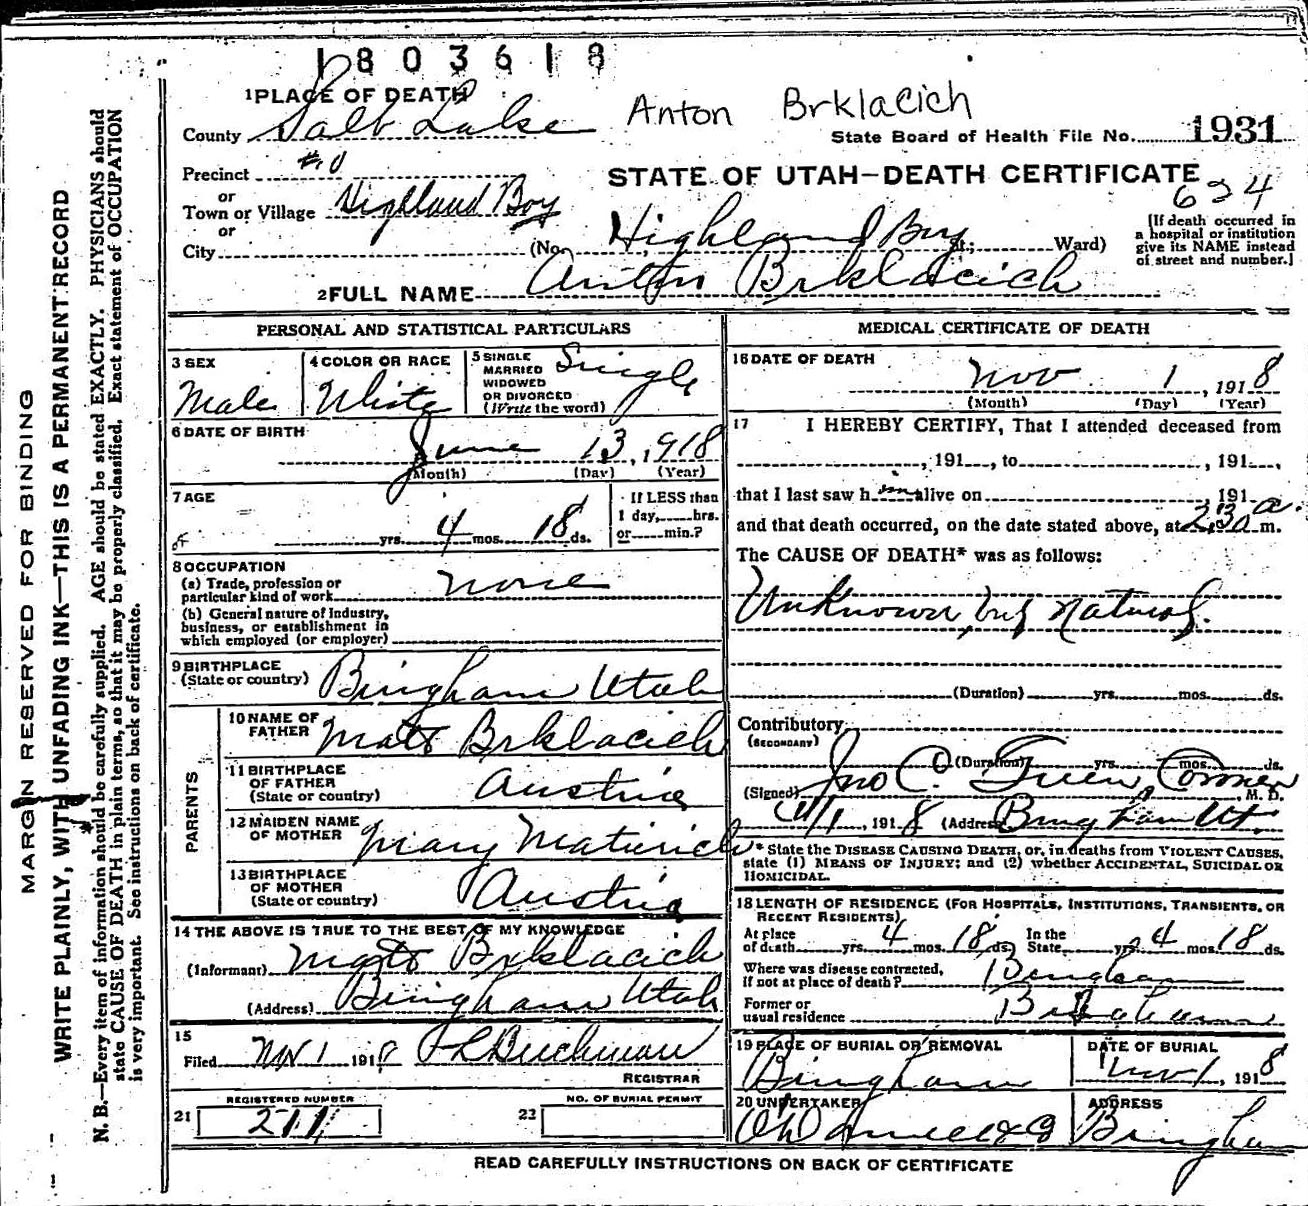 1803618
1 PLACE OF DEATH
Anton Brklacich
County Salt Lake
State Board of Health File No. 1931
Precinct #0
STATE OF UTAH—DEATH CERTIFICATE
624
or
Town or Village Highland Boy
or
City (No. Highland Boy St.; Ward)
[If death occurred in
a hospital or institution
give its NAME instead
of street and number.]
2 FULL NAME Anton Brklacich
PERSONAL AND STATISTICAL PARTICULARS
3 SEX
Male
4 COLOR OR RACE
White
5 SINGLE
MARRIED
WIDOWED
OR DIVORCED
(Write the word)
Single
6 DATE OF BIRTH
June 13, 1918
(Month) (Day) (Year)
7 AGE
yrs. 4 mos. 18 ds.
If LESS than
1 day, hrs.
or min.?
8 OCCUPATION
(a) Trade, profession or
particular kind of work none
(b) General nature of industry,
business, or establishment in
which employed (or employer)
9 BIRTHPLACE
(State or country) Bingham Utah
PARENTS
10 NAME OF
FATHER Matt Brklacich
11 BIRTHPLACE
OF FATHER
(State or country) Austria
12 MAIDEN NAME
OF MOTHER Mary Matirich
13 BIRTHPLACE
OF MOTHER
(State or country) Austria
14 THE ABOVE IS TRUE TO THE BEST OF MY KNOWLEDGE
(Informant) Matt Brklacich
(Address) Bingham Utah
15
Filed Nov 1 1918
REGISTRAR
REGISTERED NUMBER
21 211
NO. OF BURIAL PERMIT
22
MEDICAL CERTIFICATE OF DEATH
16 DATE OF DEATH
Nov 1, 1918
(Month) (Day) (Year)
17 I HEREBY CERTIFY, That I attended deceased from
, 191 , to , 191 ,
that I last saw him alive on , 191
and that death occurred, on the date stated above, at 2:30 a. m.
The CAUSE OF DEATH* was as follows:
Unknown, but natural.
(Duration) yrs. mos. ds.
Contributory
(SECONDARY)
(Duration) yrs. mos. ds.
(Signed) Jno C. Green, Coroner, M. D.
11/1, 1918 (Address) Bingham Ut.
* State the DISEASE CAUSING DEATH, or, in deaths from VIOLENT CAUSES,
state (1) MEANS OF INJURY; and (2) whether ACCIDENTAL, SUICIDAL OR
HOMICIDAL.
18 LENGTH OF RESIDENCE (FOR HOSPITALS, INSTITUTIONS, TRANSIENTS, OR
RECENT RESIDENTS)
At place
of death yrs. 4 mos. 18 ds.
In the
State yrs. 4 mos. 18 ds.
Where was disease contracted,
if not at place of death? Bingham
Former or
usual residence Bingham
19 PLACE OF BURIAL OR REMOVAL
Bingham
DATE OF BURIAL
Nov 1, 1918
20 UNDERTAKER
ADDRESS
Bingham
READ CAREFULLY INSTRUCTIONS ON BACK OF CERTIFICATE
MARGIN RESERVED FOR BINDING
WRITE PLAINLY, WITH UNFADING INK—THIS IS A PERMANENT RECORD
N. B.—Every item of information should be carefully supplied. AGE should be stated EXACTLY. PHYSICIANS should
state CAUSE OF DEATH in plain terms, so that it may be properly classified. Exact statement of OCCUPATION
is very important. See instructions on back of certificate.